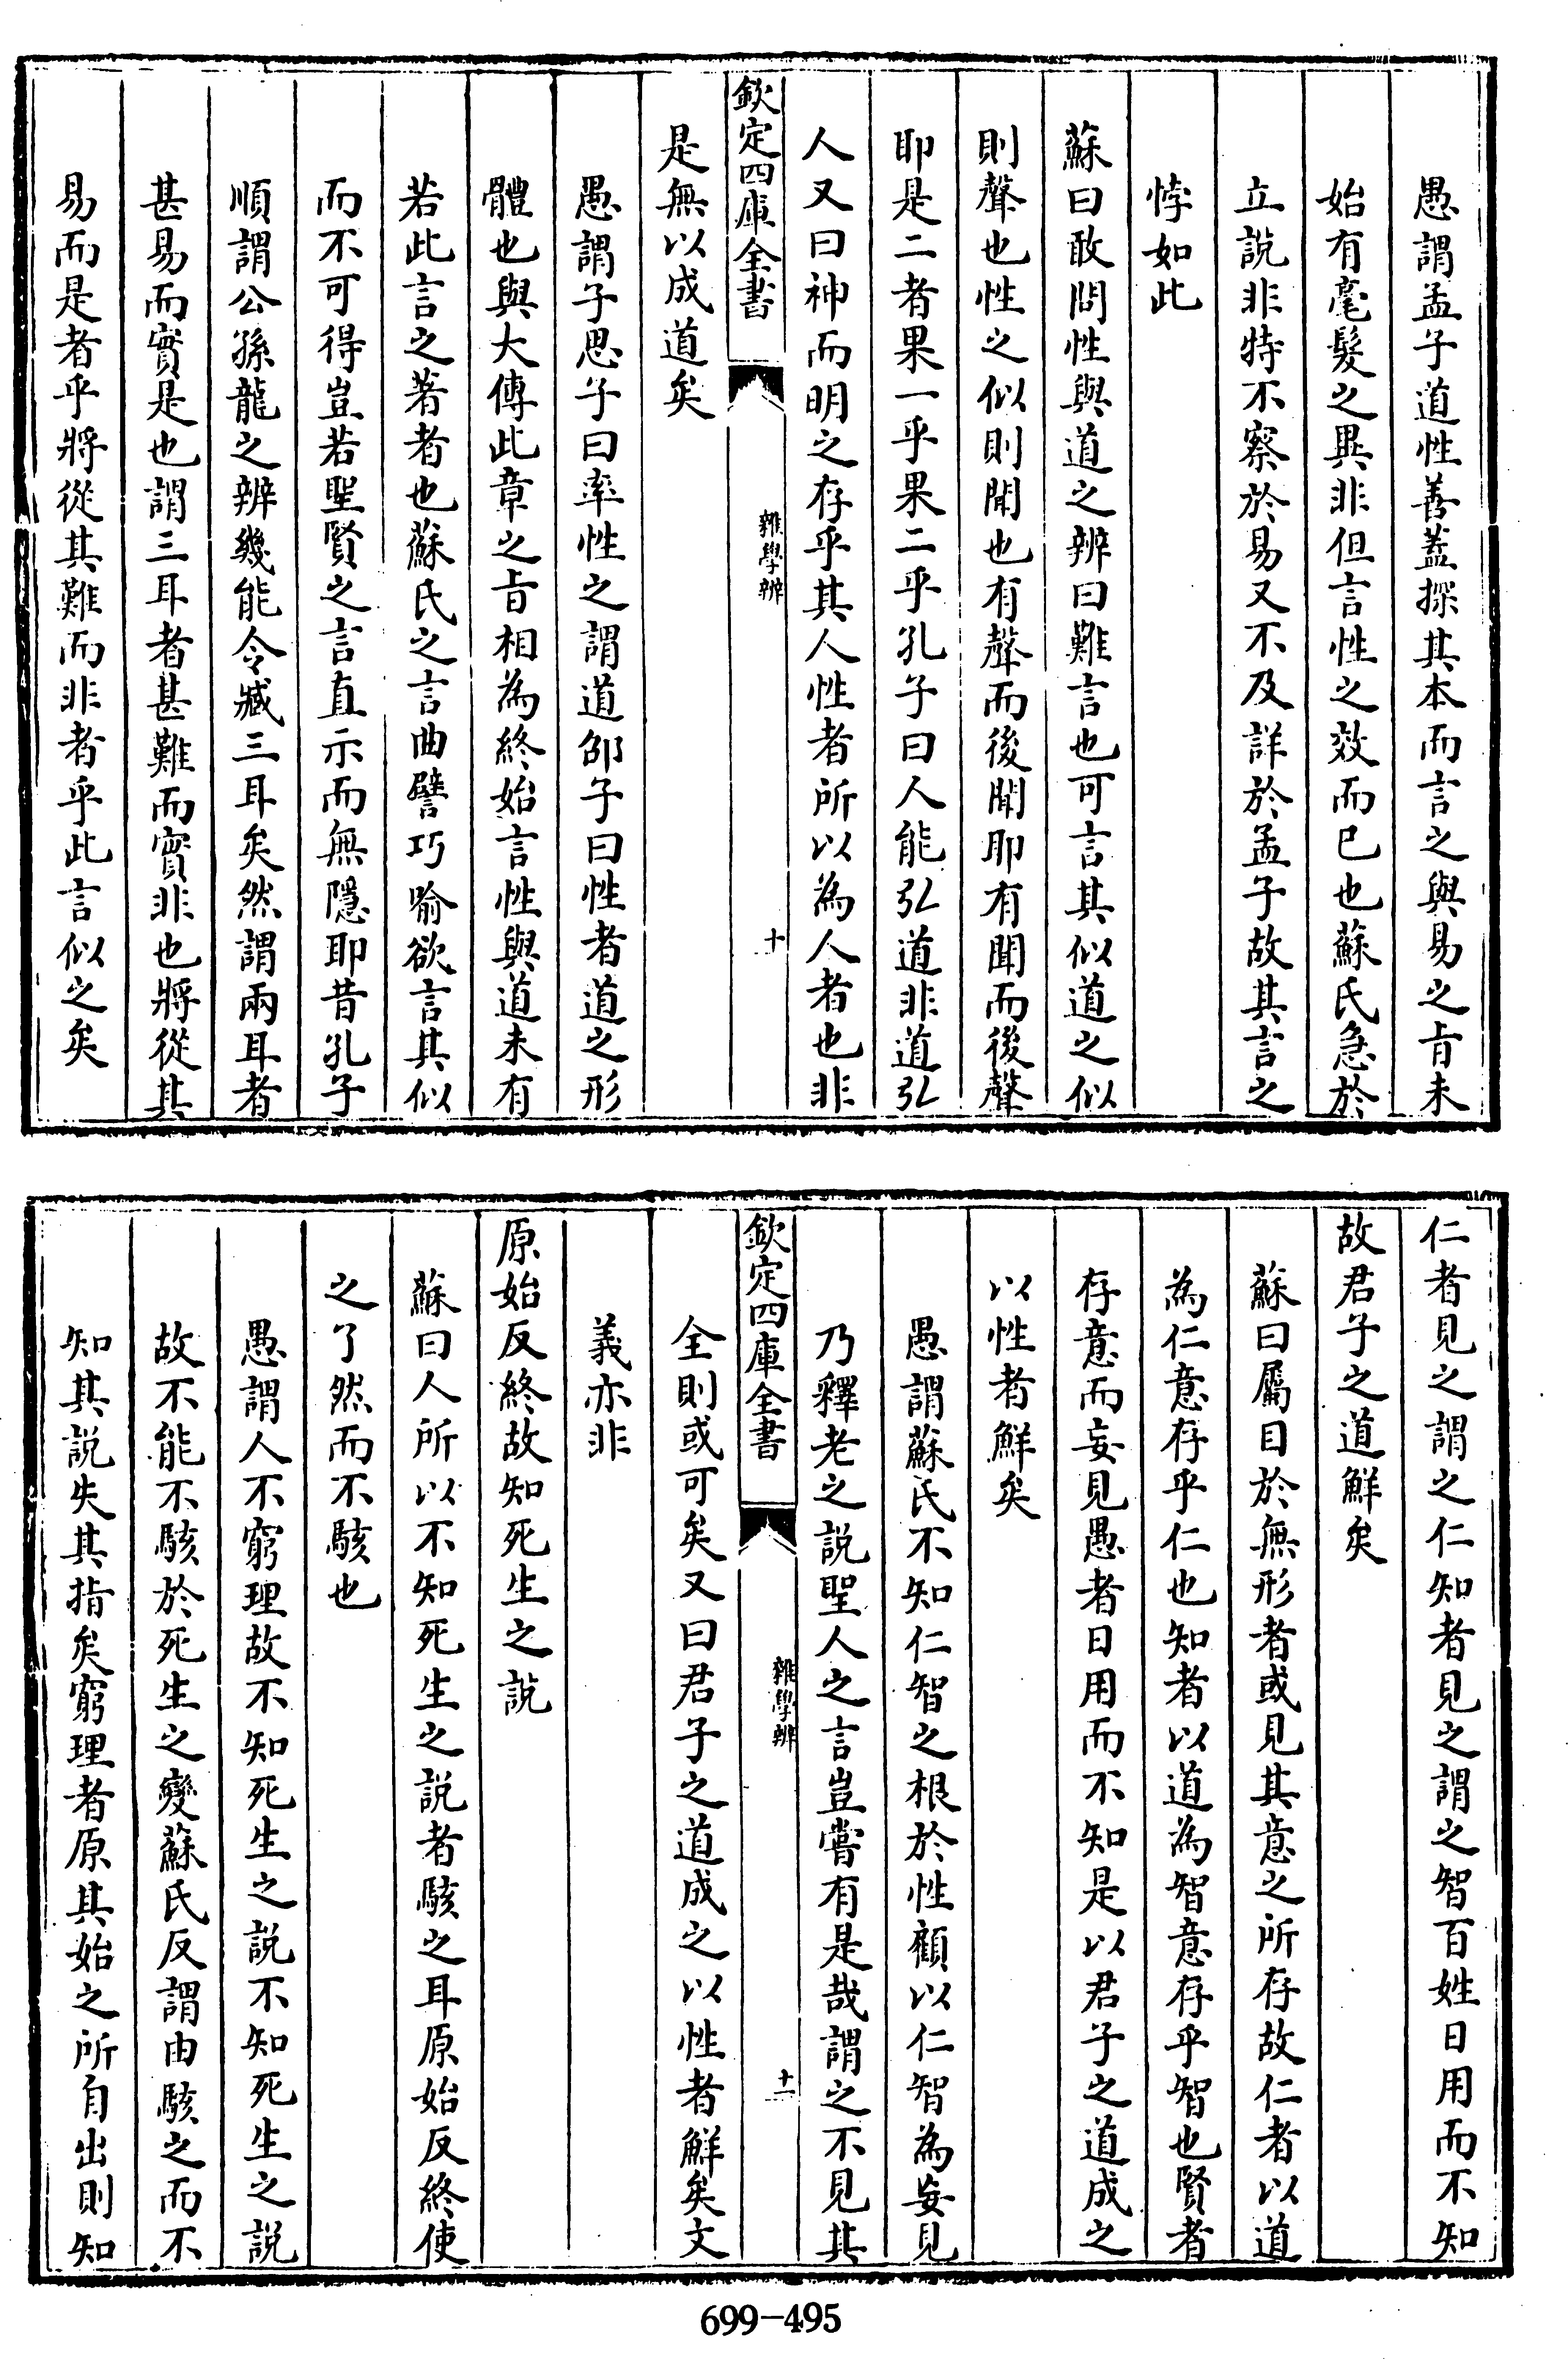 愚謂孟子道性善蓋探其本而言之與易之㫖未
始有毫髮之異非但言性之效而已也蘇氏急於
立說非特不察於易又不及詳於孟子故其言之
悖如此
蘇曰敢問性與道之辨曰難言也可言其似道之似
則聲也性之似則聞也有聲而後聞耶有聞而後聲
耶是二者果一乎果二乎孔子曰人能弘道非道弘
人又曰神而明之存乎其人性者所以為人者也非
欽定四庫全書
雜學辨
十
是無以成道矣
愚謂子思子曰率性之謂道邵子曰性者道之形
體也與大傳此章之㫖相為終始言性與道未有
若此言之著者也蘇氏之言曲譬巧喻欲言其似
而不可得豈若聖賢之言直示而無隱耶昔孔子
順謂公孫龍之辨幾能令臧三耳矣然謂兩耳者
甚易而實是也謂三耳者甚難而實非也將從其
易而是者乎將從其難而非者乎此言似之矣
仁者見之謂之仁知者見之謂之智百姓日用而不知
故君子之道鮮矣
蘇曰屬目於無形者或見其意之所存故仁者以道
為仁意存乎仁也知者以道為智意存乎智也賢者
存意而妄見愚者日用而不知是以君子之道成之
以性者鮮矣
愚謂蘇氏不知仁智之根於性顧以仁智為妄見
乃釋老之說聖人之言豈嘗有是哉謂之不見其
欽定四庫全書
雜學辨
十一
全則或可矣又曰君子之道成之以性者鮮矣文
義亦非
原始反終故知死生之說
蘇曰人所以不知死生之說者駭之耳原始反終使
之了然而不駭也
愚謂人不窮理故不知死生之說不知死生之說
故不能不駭於死生之變蘇氏反謂由駭之而不
知其說失其指矣窮理者原其始之所自出則知
699-495